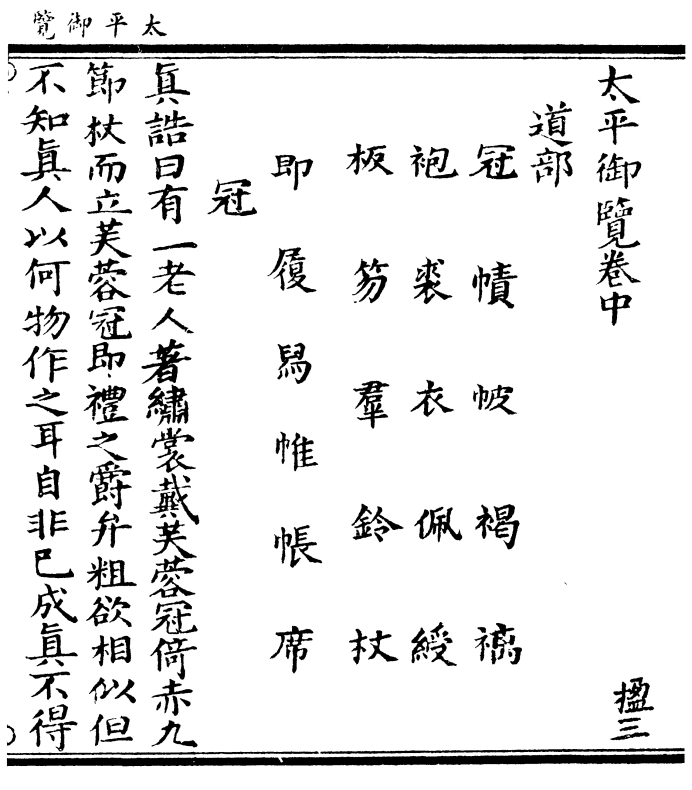 太平御覽
太平御覽卷中 楹三
道部
冠 幘 帔 褐
袍 裘 衣 佩 綬
板 笏 羣 鈴 杖
即 履 舄 帷 帳 席
冠
眞誥曰有一老人著繡裳戴芙蓉冠倚赤九
節杖而立芙蓉冠即禮之爵弁粗欲相似但
不知眞人以何物作之耳自非已成眞不得